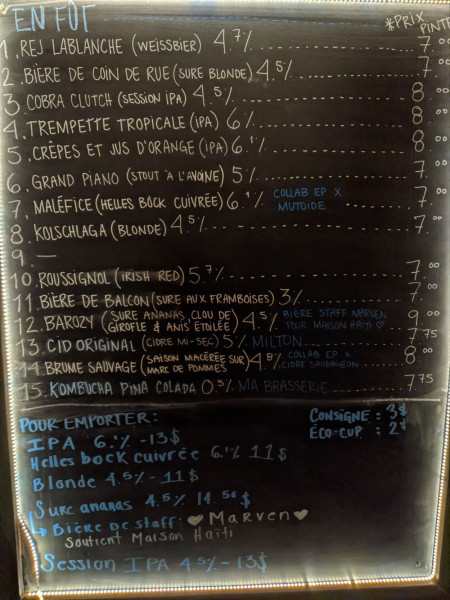 EN FÛT *PRIX PINTE
1. REJ LABLANCHE (WEISSBIER) 4.7% 7.00
2. BIÈRE DE COIN DE RUE (SURE BLONDE) 4.5% 7.00
3. COBRA CLUTCH (SESSION IPA) 4.5% 8.00
4. TREMPETTE TROPICALE (IPA) 6% 8.00
5. CRÊPES ET JUS D'ORANGE (IPA) 6.1% 8.00
6. GRAND PIANO (STOUT À L'AVOINE) 5% 7.00
7. MALÉFICE (HELLES BOCK CUIVRÉE) 6.1% COLLAB EP X MUTOÏDE 7.00
8. KOLSCHLAGA (BLONDE) 4.5% 7.00
9. —
10. ROUSSIGNOL (IRISH RED) 5.7% 7.00
11. BIÈRE DE BALCON (SURE AUX FRAMBOISES) 3% 7.00
12. BAROZY (SURE ANANAS, CLOU DE GIROFLE & ANIS ÉTOILÉE) 4.5% BIÈRE STAFF MARVEN POUR MAISON HAÏTI ♡ 9.00
13. CID ORIGINAL (CIDRE MI-SEC) 5% MILTON 7.75
14. BRUME SAUVAGE (SAISON MACÉRÉE SUR MARC DE POMMES) 4.8% COLLAB EP X CIDRE SAUVAGEON 8.00
15. KOMBUCHA PINA COLADA 0.5% MA BRASSERIE 7.75
POUR EMPORTER: CONSIGNE : 3$
IPA 6.1% - 13$ ÉCO-CUP : 2$
Helles bock cuivrée 6.1% 11$
Blonde 4.5% - 11$
Sure ananas 4.5% 14.50$
↳ Bière de staff: ♥ Marven ♥
Soutient Maison Haïti
Session IPA 4.5% - 13$